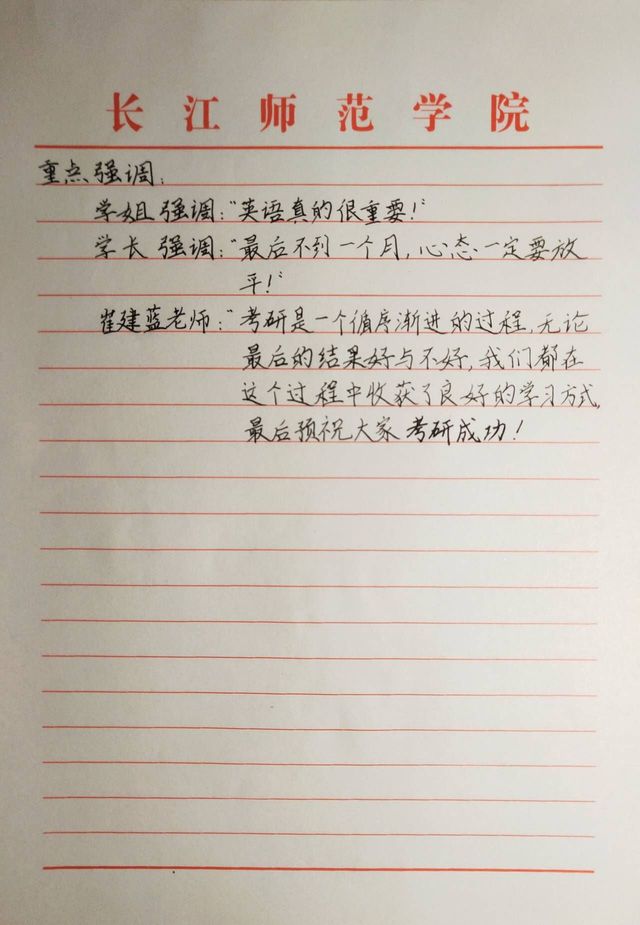 长江师范学院
重点强调：
学姐强调：“英语真的很重要！”
学长强调：“最后不到一个月，心态一定要放
平！”
崔建蓝老师：“考研是一个循序渐进的过程，无论
最后的结果好与不好，我们都在
这个过程中收获了良好的学习方式，
最后预祝大家考研成功！